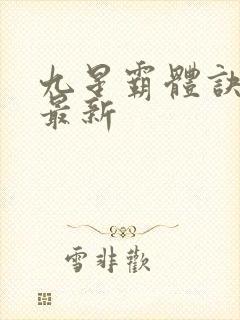 九星霸體訣
最新
雪非歡